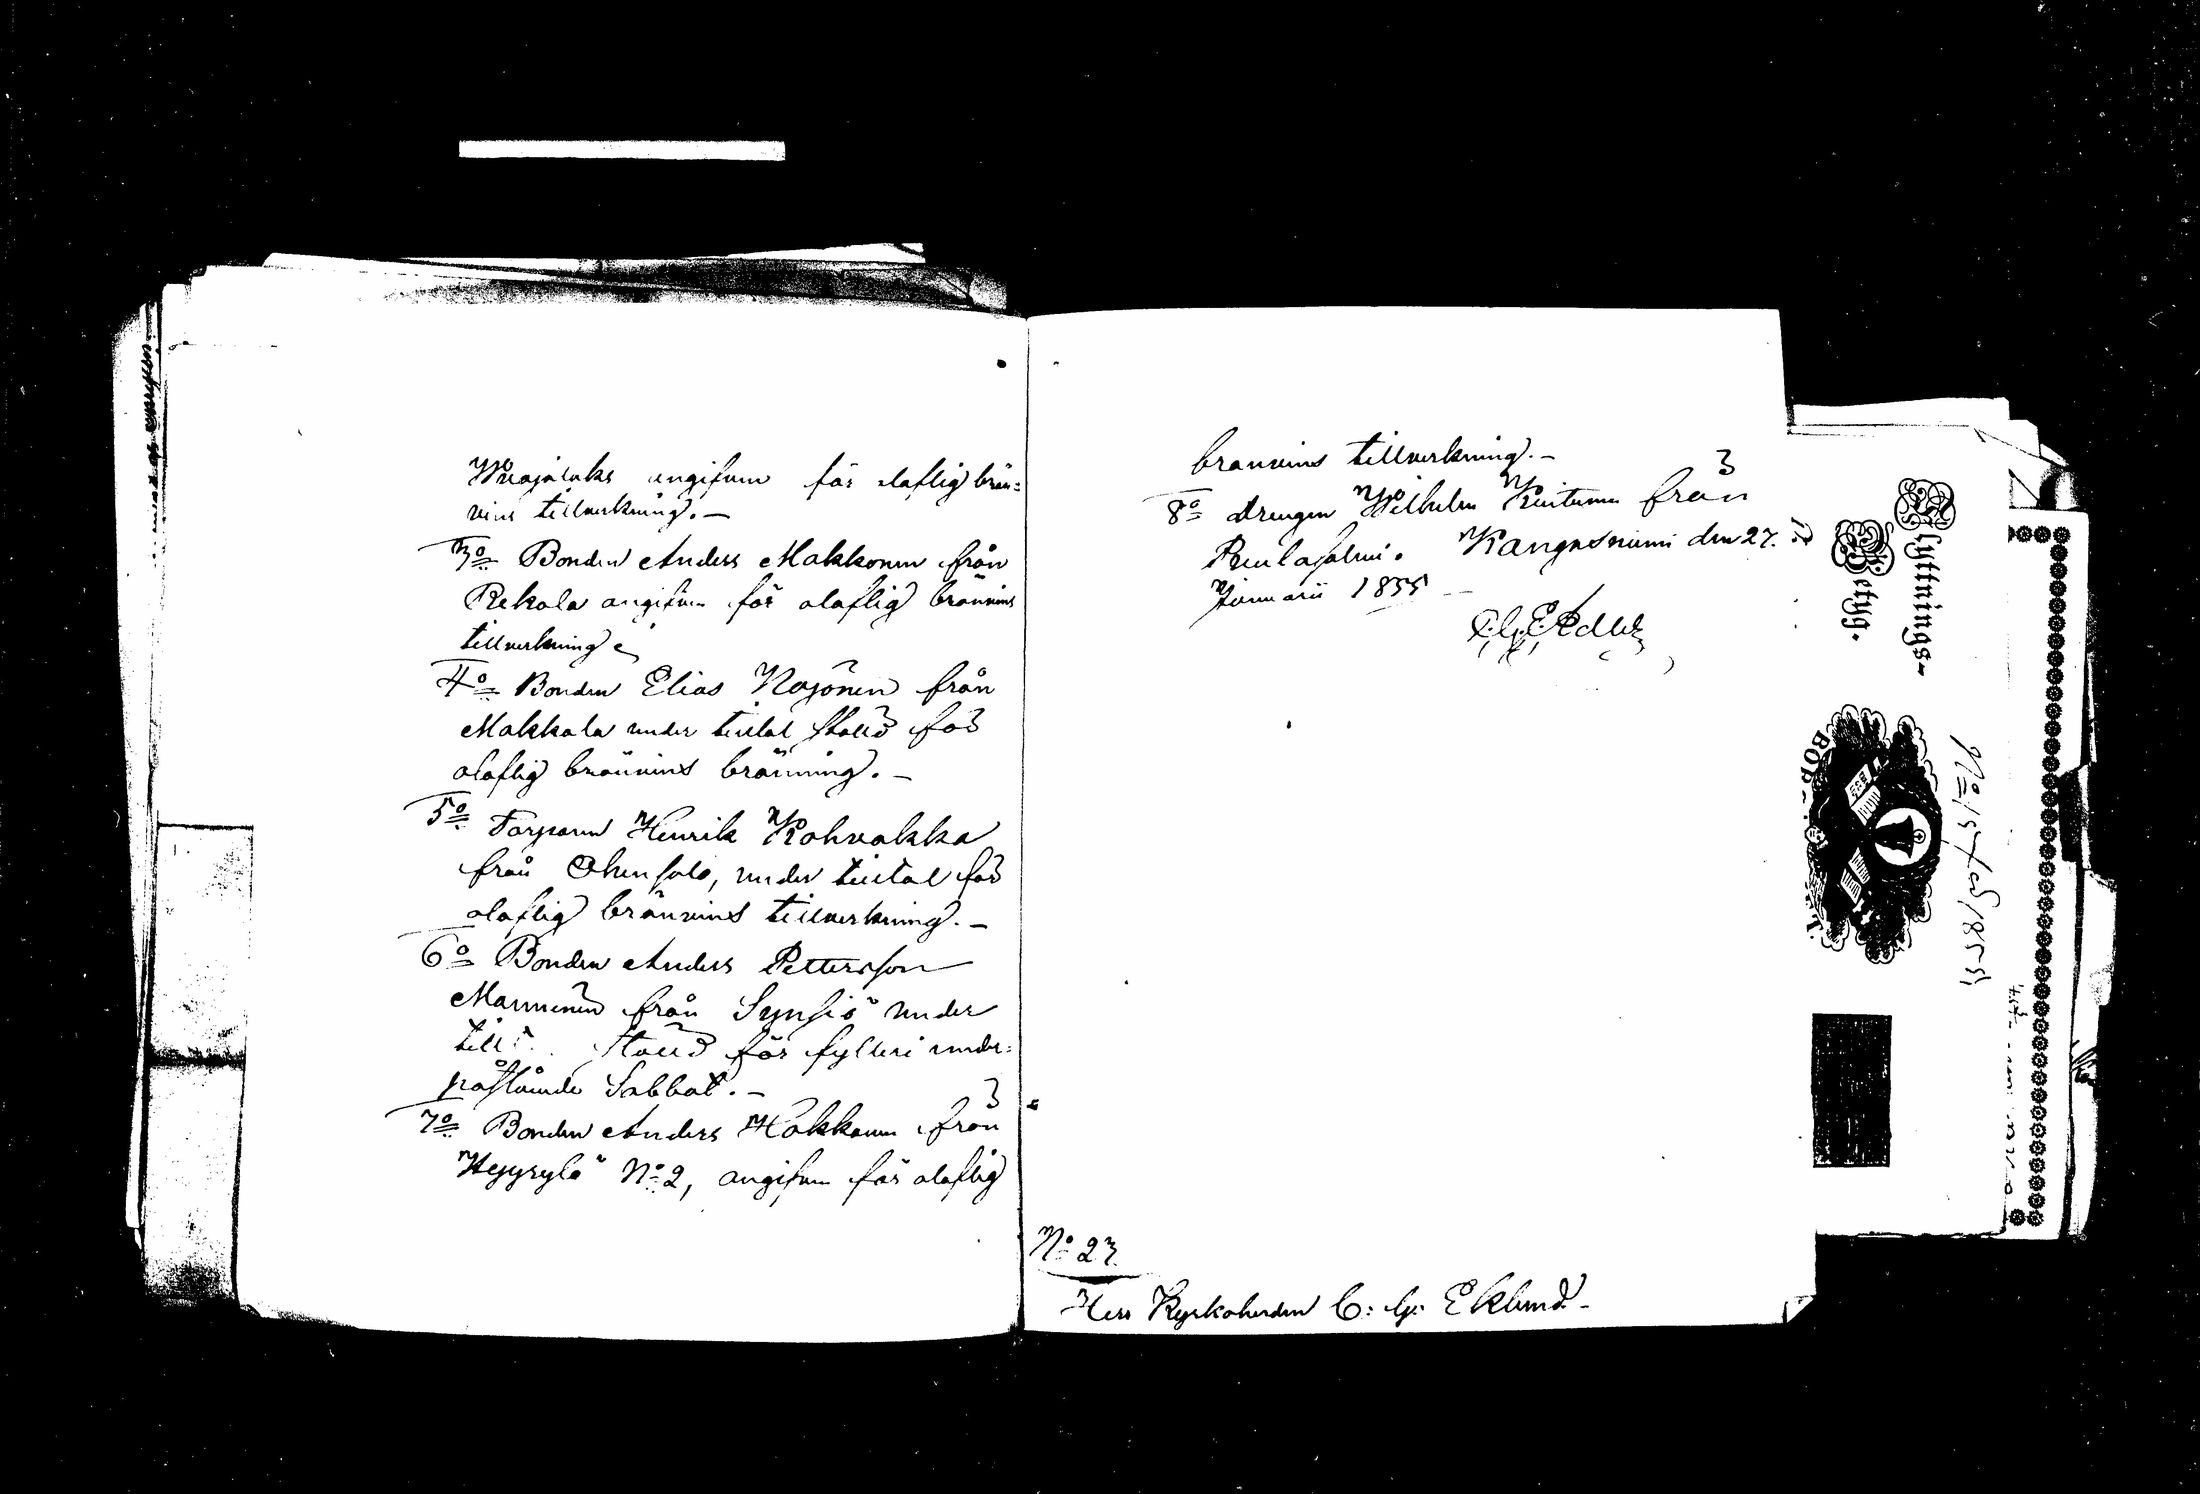 angifven för olaflig brän=
vins tillverkning. –
3o Bonden Anders Makkonen från
Rekola angifven för olaflig brännvins
tillverkning
4o Bonden Elias Noijonen från
Makkola under tiltal ställd för
olaflig brännvins bränning. –
5o Torparen Henrik Kohvakka
från Ohensalo, under tiltal för
olaflig brännvins tillverkning. –
6o Bonden Anders Pettersson
Manninen från Synsiö under
ställd för fylleri under
påstående Sabbat. –
7o Bonden Anders Hokkanen från
Hyyrylä No 2, angifven för olaflig
branvins tillverkning. –
8o drengen Wilhelm från
Kangasniemi den 27.
Januarii 1855
No 27.
Herr Kyrkoherden C: G: Eklund. –
Flyttnings-
Betyg.
BOR
No 15 1855